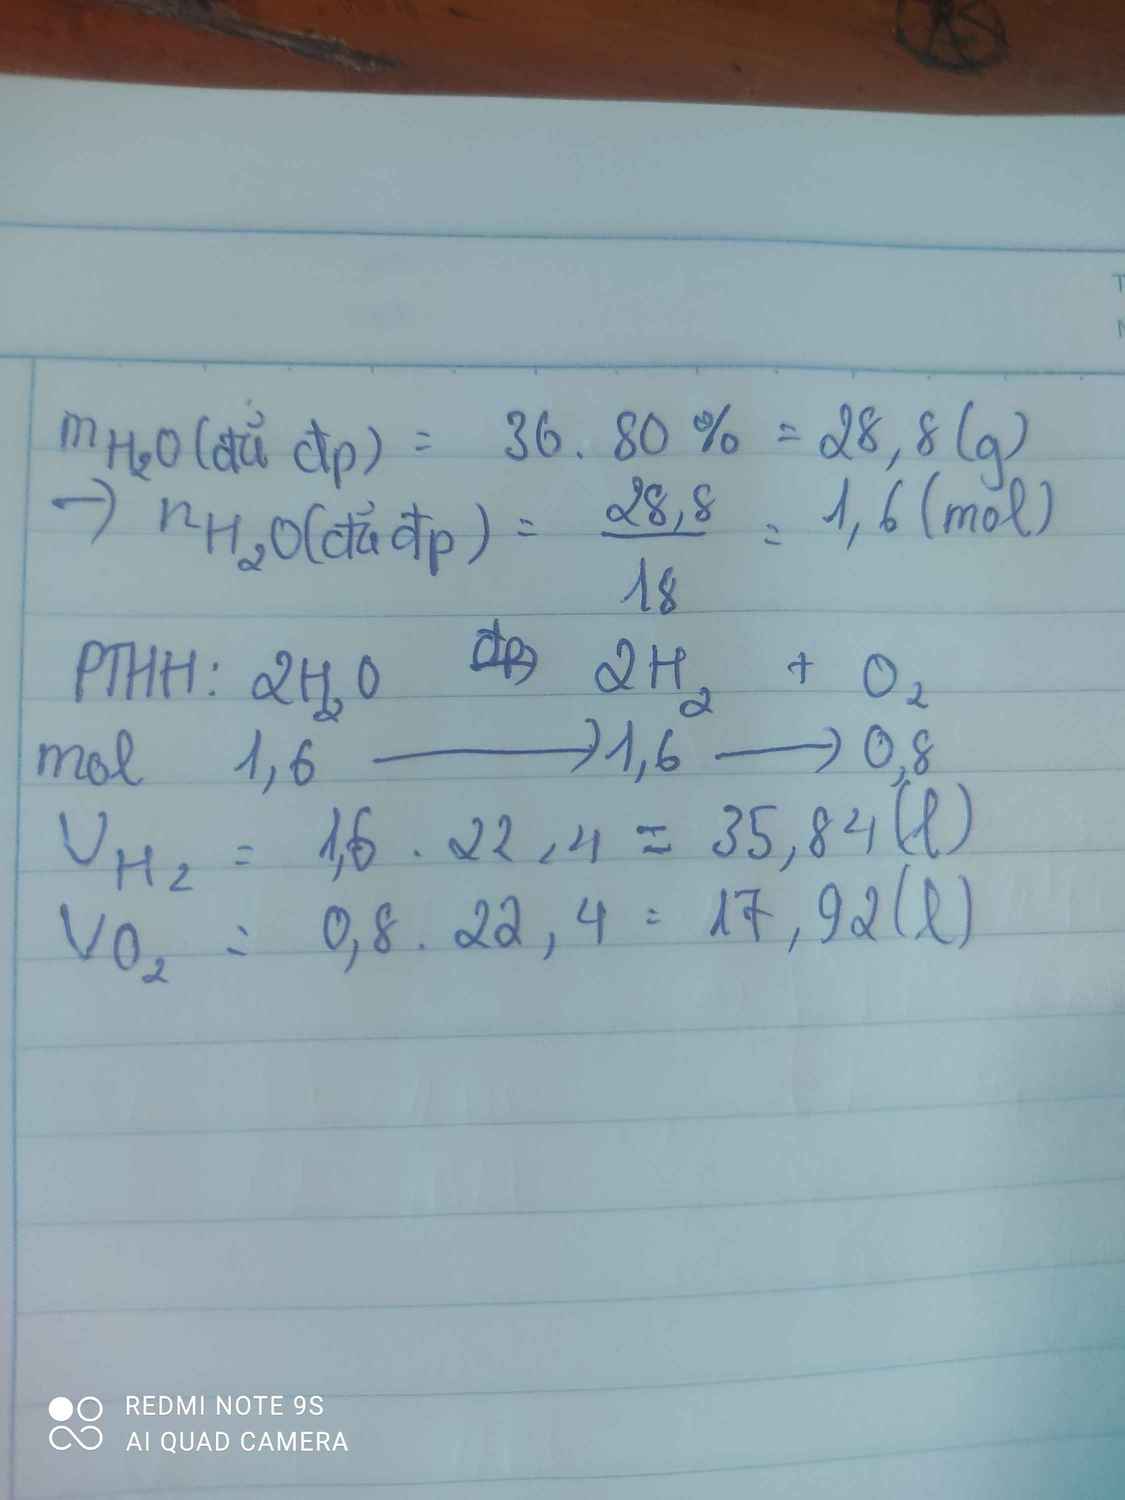 mH₂O(đủ đp) = 36. 80 % = 28,8(g)
→ nH₂O(đủ đp) = 28,8/18 = 1,6 (mol)
PTHH: 2H₂O đp 2H₂ + O₂
mol 1,6 → 1,6 → 0,8
VH₂ = 1,6 . 22,4 = 35,84(l)
VO₂ = 0,8. 22,4 = 17,92(l)
REDMI NOTE 9S
AI QUAD CAMERA